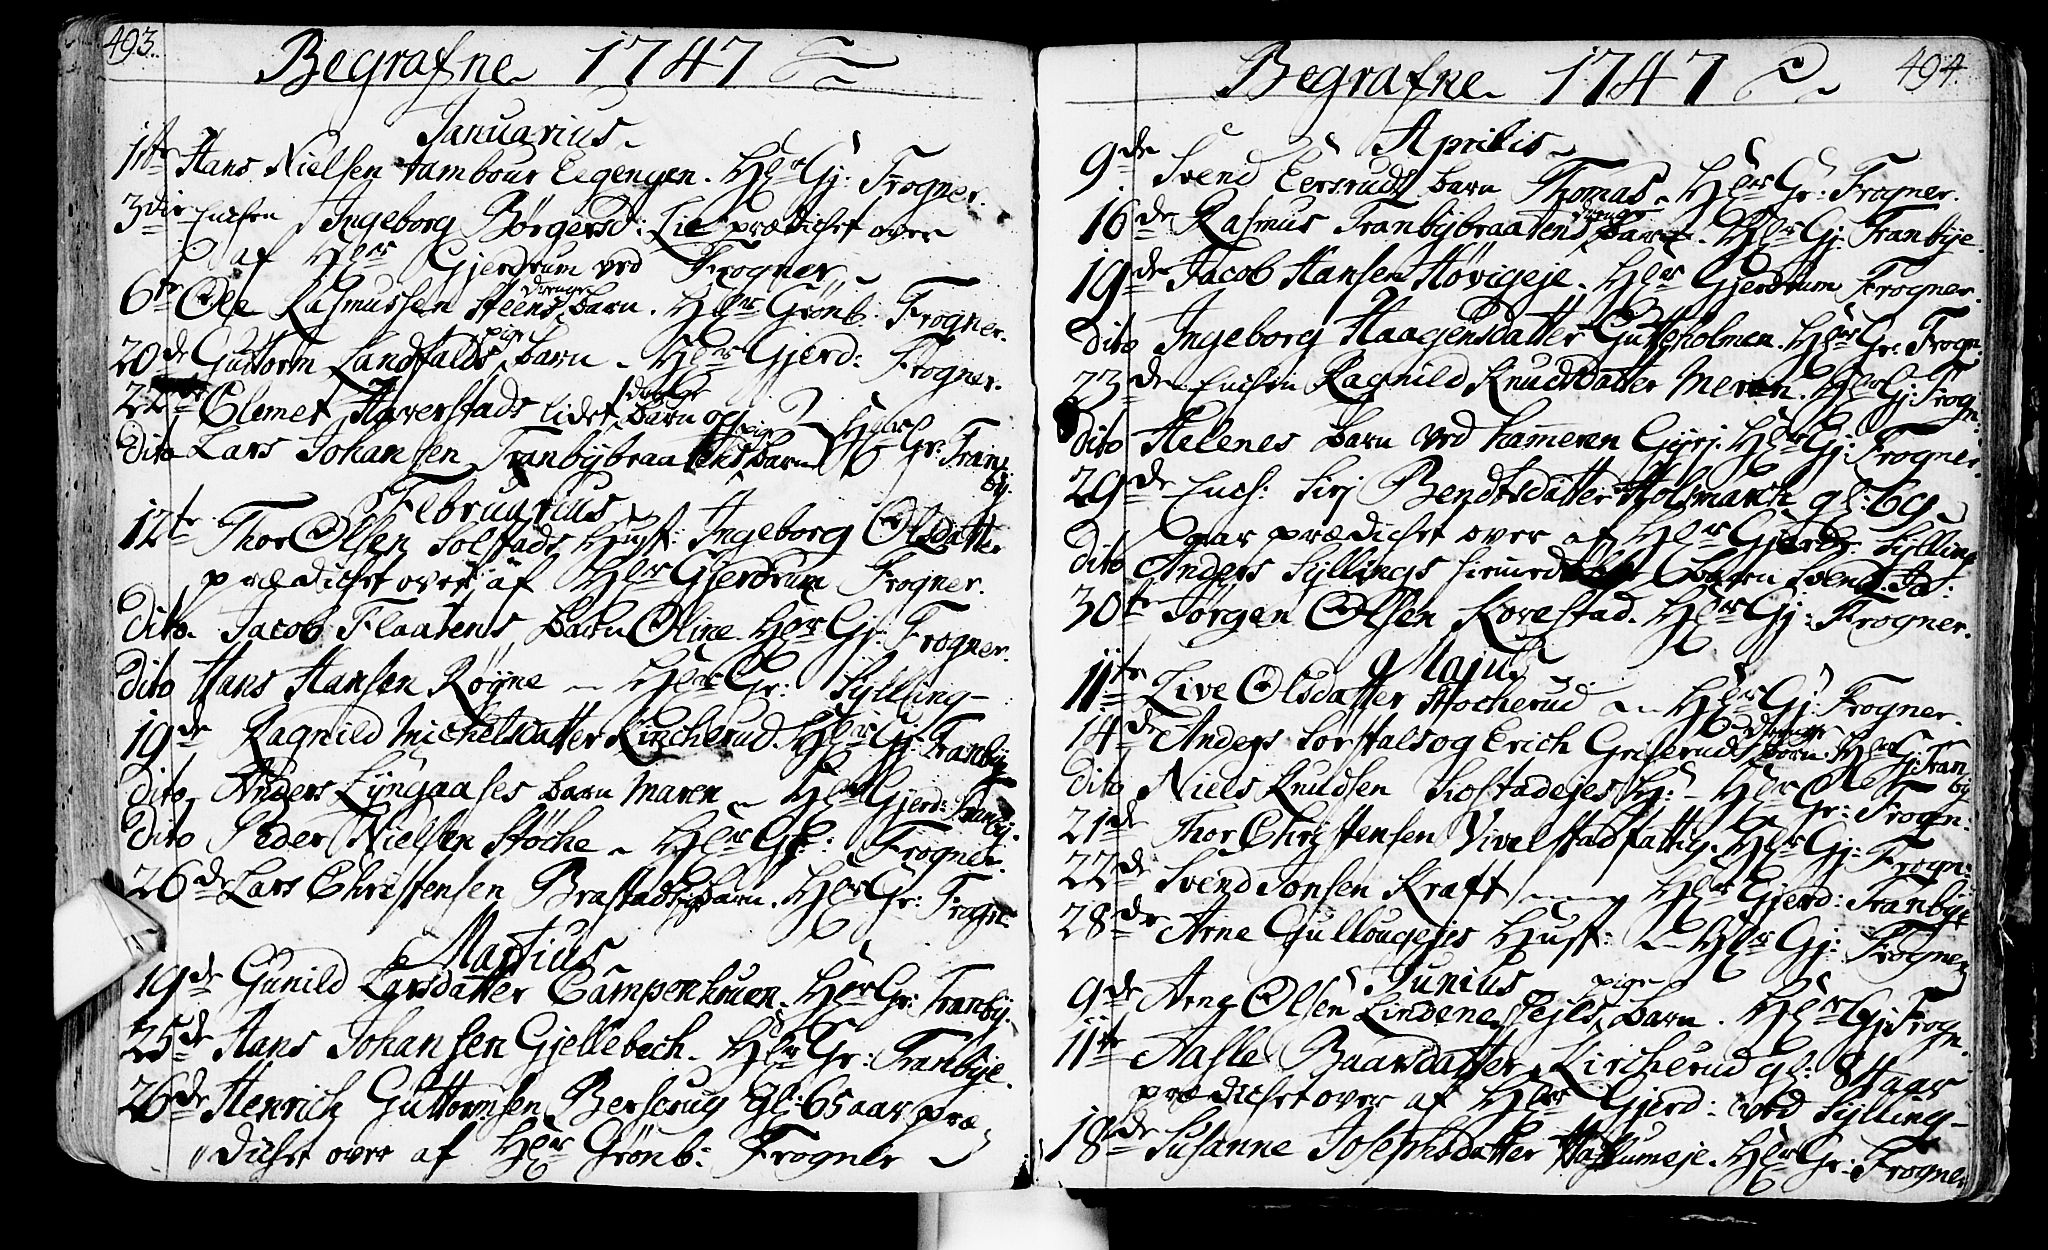 493.
Begrafne 1747
Januarius
1ste Hans Nielsen tambour Eegengen. HErr Gj: Frogner.
3die Enchen Ingeborg Börgersd: Lie prædichet over
af HErr Gjerdrum ved Frogner
6te Ole Rasmussen Steens drenge barn. HErr Grönb: Frogner.
20de Guttorm Landfalds pige barn. HErr Gjerd: Frogner.
22de Clemet Haverstads lidet drenge barn og
dito Lars Johansen Tranbybraatens pige barn HErr Gr: Tranby.
Februarius
12te Thor Olsen Solstads Hust: Ingeborg Olsdatter
prædichet over af HErr Gjerdrum Frogner.
dito. Jacob Flaatens barn Oline HErr Gj: Frogner.
dito Hans Hansen Röyne HErr Gr: Sylling
19de Ragnild Michelsdatter Kircherud. HErr Gj: Tranby
dito Anders Lyngaases barn Maren HErr Gjerd: Tranby.
dito Peder Nielsen Höche HErr Gj: Frogner.
26de Lars Christensen Brastads barn. HErr Gr: Frogn:
Martius
19de Gunild Larsdatter Campenhuen. HErr Gr: Tranby.
25de Hans Johansen Gjellebech. HErr Gr: Tranbye.
26de Henrich Guttormsen Berserug gl: 65 aar præ
dichet over af HErr Grönb: Frogner
494.
Begrafne 1747
Aprilis
9de Svend Eersruds barn Thomas. HErr Gr: Frogner.
16de Rasmus Tranbybraatens drenge barn. HErr Gj: Tranbye
19de Jacob Hansen Hövigeje. HErr Gjerdrum Frogner.
dito Ingeborg Haagensdatter Gutteholmen. HErr Gr: Frogn:
23de Enchen Ragnild Knudsdatter Meren. HErr Gj: Frogn:
dito Helenes barn ved hameren Gyrj. HErr Gj: Frogner.
29de Ench: Sirj Bendtsdatter Holsmarch gl: 69
aar prædichet over af HErr Gjerdr: Sylling
dito Anders Syllings barn Svend. Id:
30te Jörgen Olsen Kovestad. HErr Gj: Frogner.
Majus
11te Live Olsdatter Stocherud HErr Gj: Frogner.
14de Anders Sörstals og Erich Griseruds drenge barn: HErr Gj: Tranby
dito Niels Knudsen Solstadejes H: HErr Gr: Frogn:
21de Thor Christensen Vivelstad fattig. HErr Gj: Frogn:
22de Svend Jonsen Kraft HErr Gjerd: Tranbye
28de Arne Gullougejes Hust: HErr Gj: Frogner
Junius
9de Arne Olsen Lindenes pige barn. HErr Gj: Frogn.
11te Aasle Baarsdatter Kircherud gl: 84 aar
prædichet over af HErr Gjerd: ved Sylling
18de Susanne Josephsdatter Hallumeje. HErr Gr: Frogner